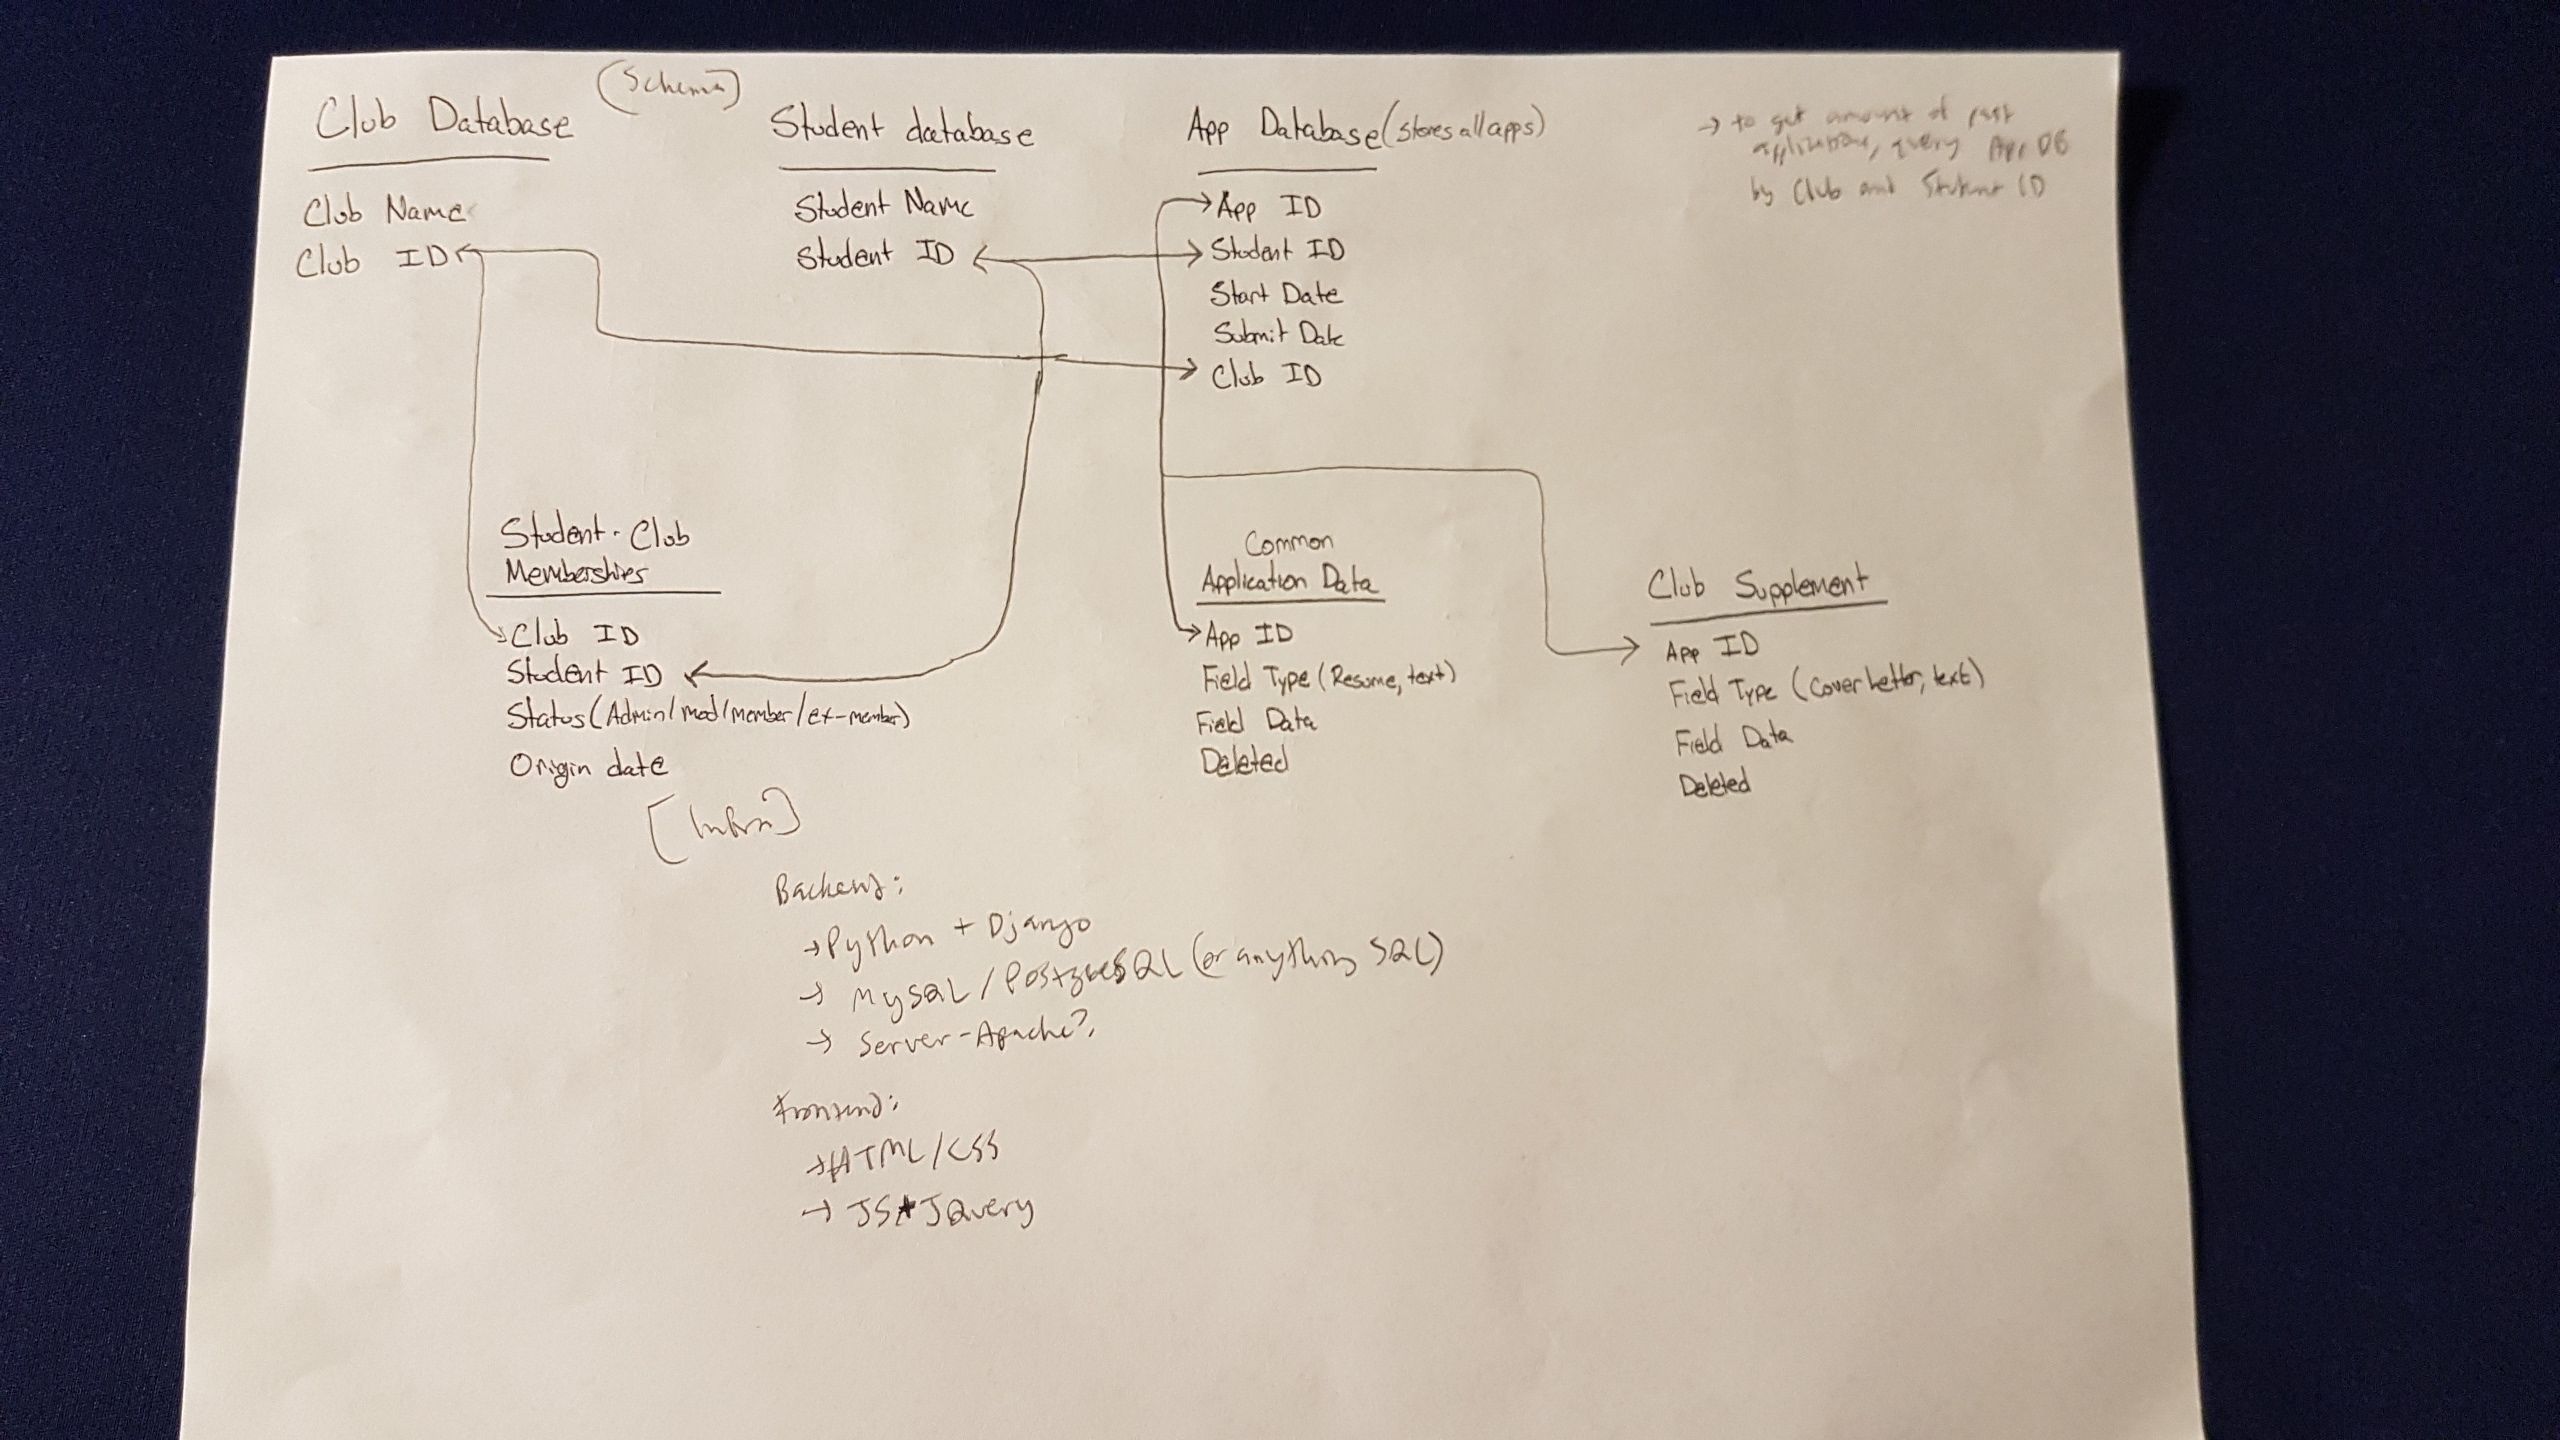 (Schema)
Club Database
Club Name
Club ID
Student database
Student Name
Student ID
App Database (stores all apps)
App ID
Student ID
Start Date
Submit Date
Club ID
→ to get amount of past
applications, query App DB
by Club and Student ID
Student-Club
Memberships
Club ID
Student ID
Status (Admin/mod/member/ex-member)
Origin date
Common
Application Data
App ID
Field Type (Resume, text)
Field Data
Deleted
Club Supplement
App ID
Field Type (Cover Letter, text)
Field Data
Deleted
[Infra]
Backend:
→ Python + Django
→ MySQL / PostgreSQL (or anything SQL)
→ Server - Apache?
Frontend:
→ HTML/CSS
→ JS + JQuery